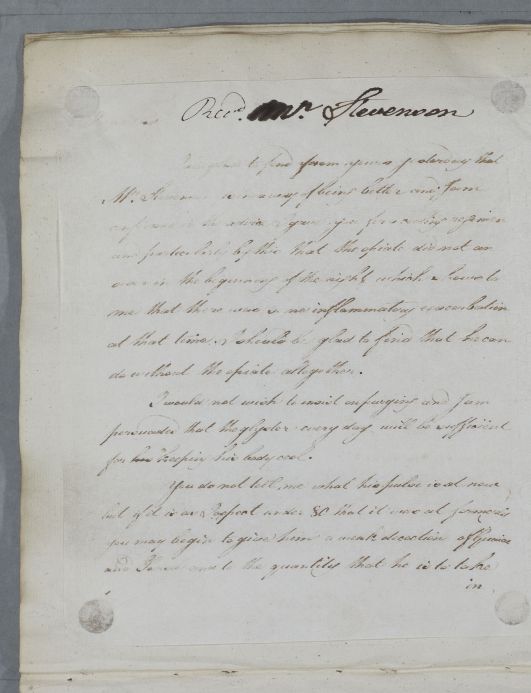 Recd. Mr. Stevenson
to find from yours yesterday that
Mr. is in a way of being better and I am
in the advice I gave you for a cooling regimen
and particularly by this that the opiate did not an
swer in the beginning of the night which shews to
me that there was no inflammatory exacerbation
at that time. I should be glad to find that he can
do without the opiate altogether.
I would not wish to insist on purging and I am
persuaded that the glyster every day will be sufficient
for keeping his body cool.
You do not tell me what his pulse is at now
but if it is as I expect under 80 that it was at formerly
you may begin to give him a weak decoction of
and to the quantities that he is to take
in